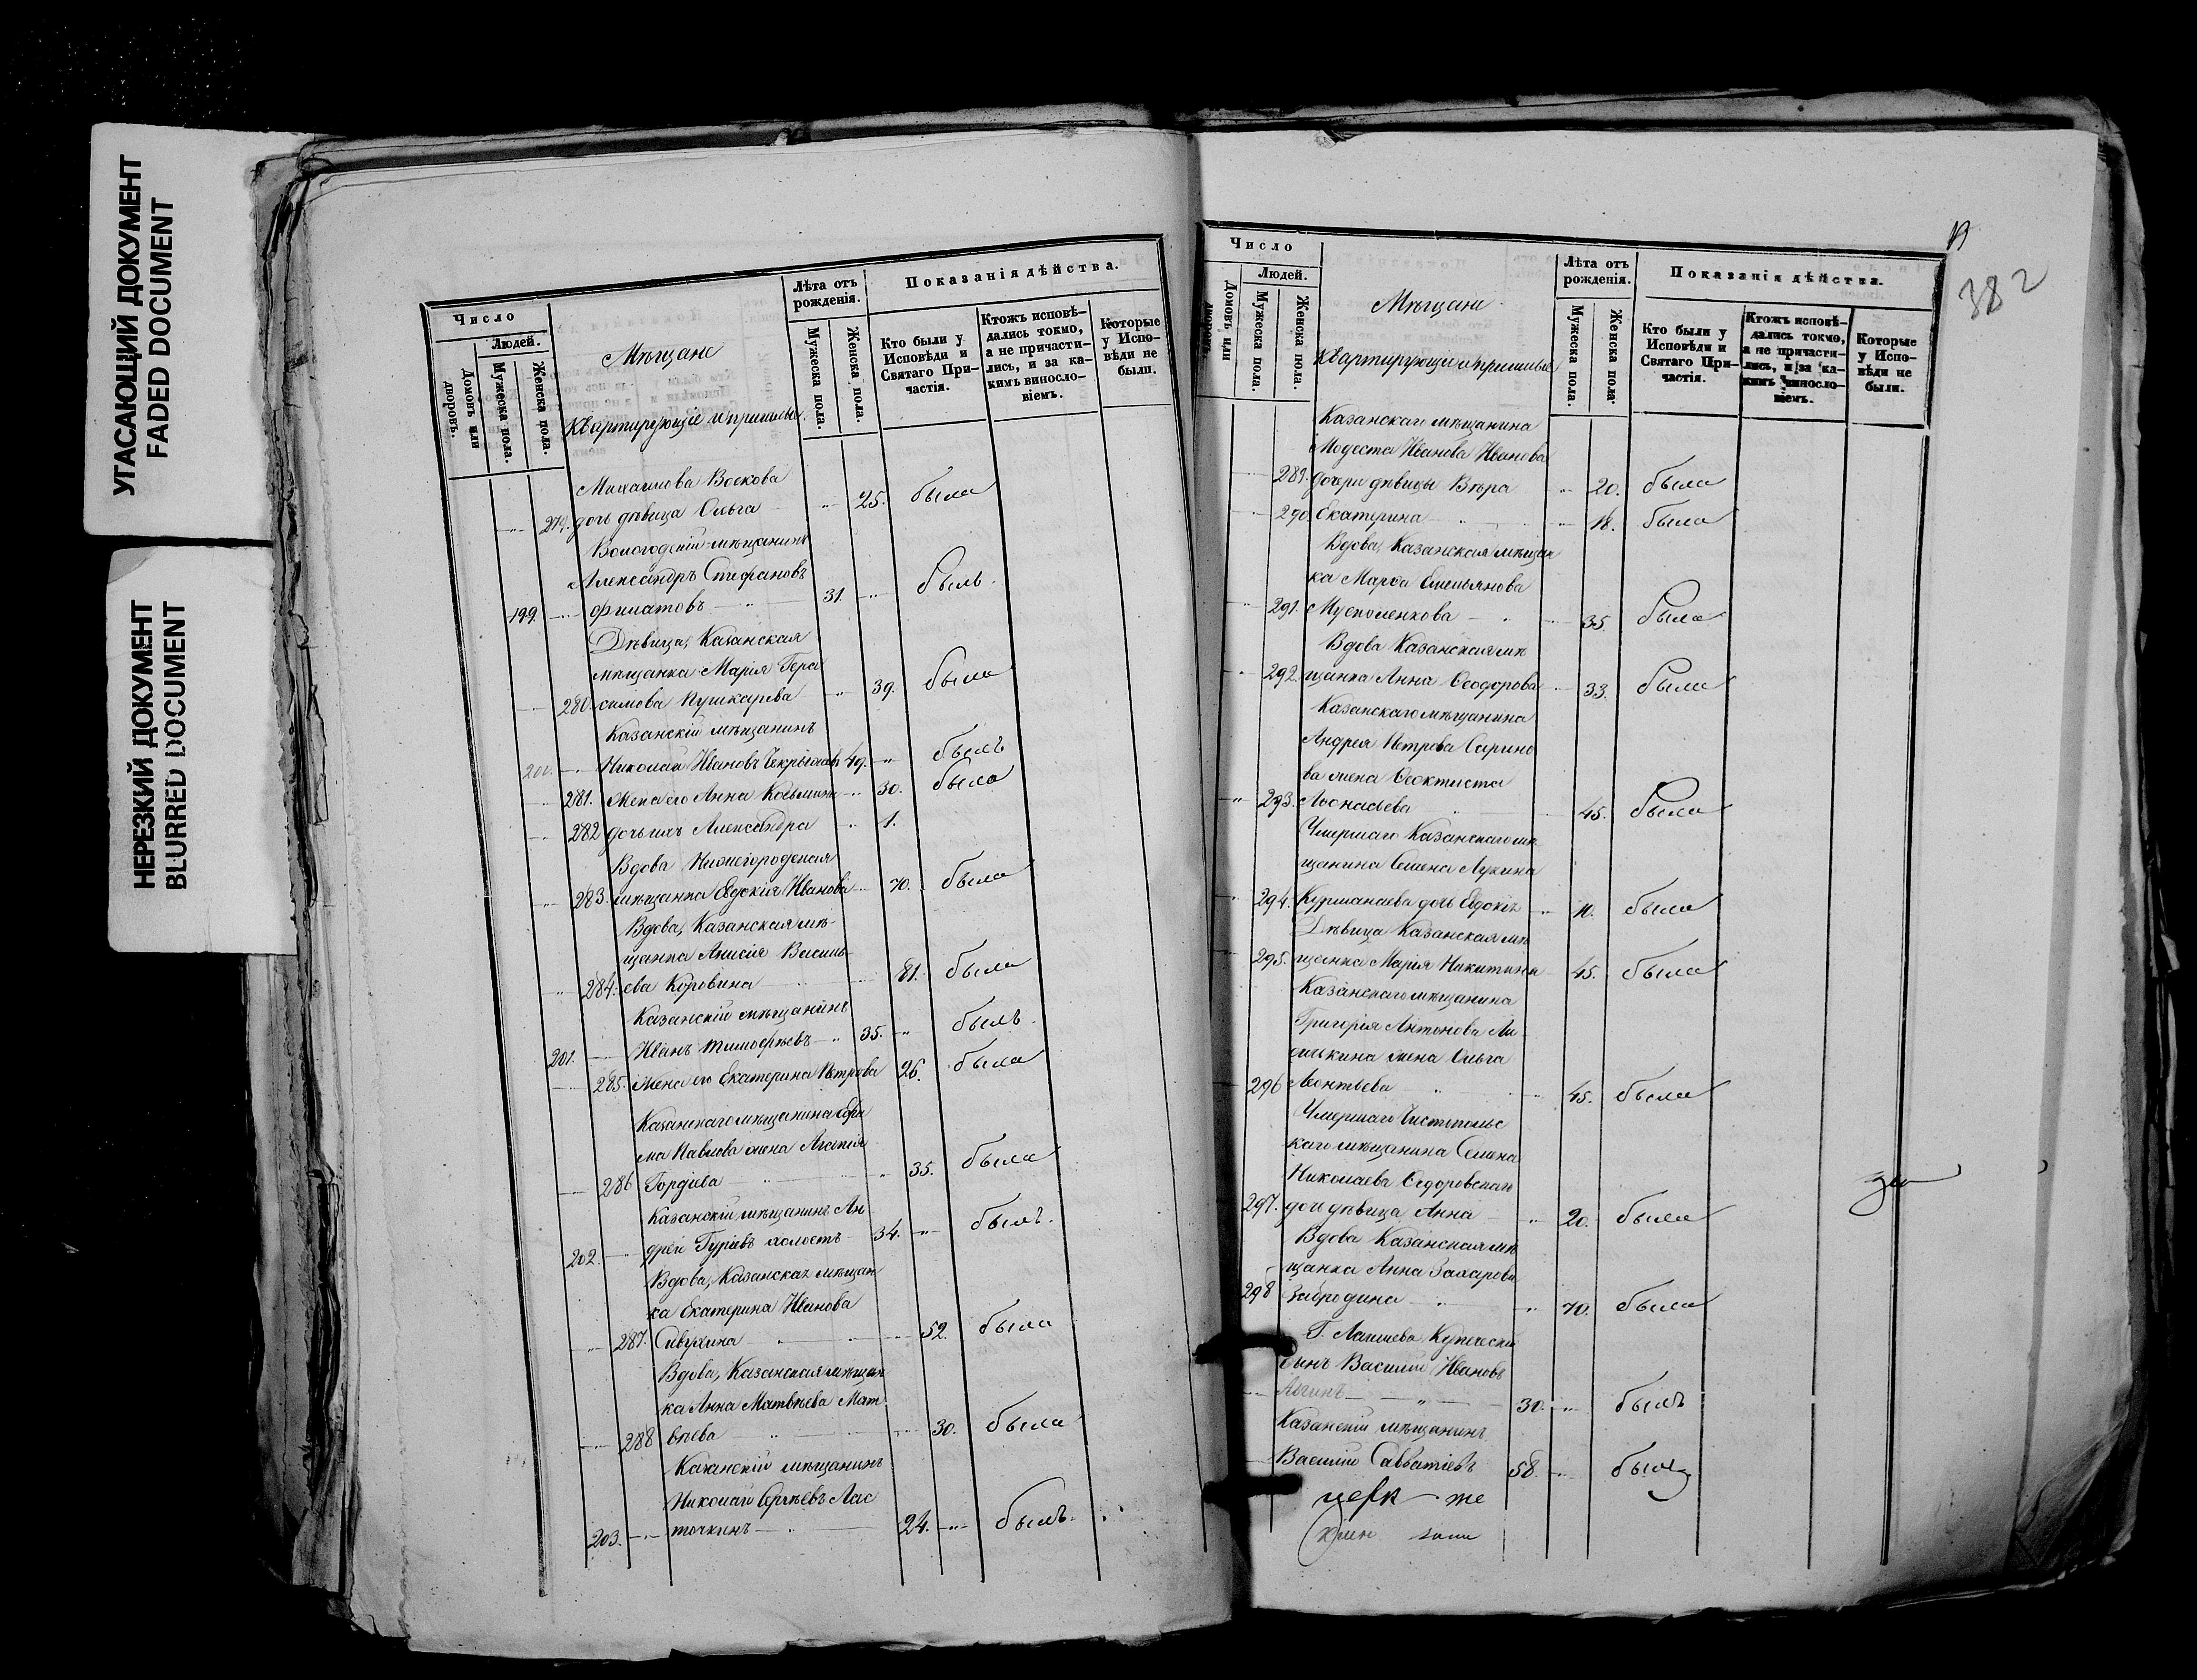 УГАСАЮЩИЙ ДОКУМЕНТ
FADED DOCUMENT
НЕРЕЗКИЙ ДОКУМЕНТ
BLURRED DOCUMENT
Число
Людей.
Домовъ или дворовъ.
Мужеска пола.
Женска пола.
Мѣщане
Квартирующіе и пришлые.
Лѣта отъ рожденія.
Мужеска пола.
Женска пола.
Показанія дѣйства.
Кто были у Исповѣди и Святаго Причастія.
Ктожъ исповѣдались токмо, а не причастились, и за какимъ винословіемъ.
Которые у Исповѣди не были.
Михаилова Воскова
279. дочь дѣвица Ольга 25. была
Вологодскій мѣщанинъ
Александръ Стефановъ
199. Филатовъ 31. былъ.
Дѣвица, Казанская
мѣщанка Марія Гера
280. симова Пушкарева 39. была
Казанскій мѣщанинъ
200. Николай Ивановъ 49. былъ
281. Жена его Анна Козьмина 30. была
282 дочь ихъ Александра 1.
Вдова Нижегородская
283. мѣщанка Евдокія Иванова 70. была
Вдова, Казанская мѣ-
щанка Анисія Василь-
284. ева Коровина 81. была
Казанскій мѣщанинъ
201. Иванъ Тимофѣевъ 35. былъ.
285. Жена его Екатерина Петрова 26. была
Казанскаго мѣщанина Ефи
ма Павлова жена Агапія
286 Гордіева 35. была
Казанскій мѣщанинъ Ан
202. дрей Гурьевъ холостъ 34. былъ.
Вдова, Казанская мѣщан
ка Екатерина Иванова
287. Сивухина 52. была
Вдова, Казанская мѣщан
ка Анна Матвѣева Мат
288 вѣева 30. была
Казанскій мѣщанинъ
Николай Сергѣевъ Лас
203. точкинъ 24. былъ.
382
Число
Людей.
Домовъ или дворовъ.
Мужеска пола.
Женска пола.
Мѣщане
Квартирующіе и пришлые
Лѣта отъ рожденія.
Мужеска пола.
Женска пола.
Показанія дѣйства.
Кто были у Исповѣди и Святаго Причастія.
Ктожъ исповѣдались токмо, а не причастились, и за какимъ винословіемъ.
Которые у Исповѣди не были.
Казанскаго мѣщанина
Модеста Иванова Иванова
289. дочери дѣвицы Вѣра 20. была
290. Екатерина 18. была
Вдова, Казанская мѣщан
ка Марѳа Емельянова
291. 35. была
Вдова Казанская мѣ
292. щанка Анна Ѳеодорова 33. была
Казанскаго мѣщанина
Андрея Петрова Сарино
ва жена Ѳеоктиста
293. Аѳонасьева 45. была
Умершаго Казанскаго мѣ
щанина Семена Лукина
294. Курманаева дочь Евдокія 10. была
Дѣвица Казанская мѣ
295. щанка Марія Никитина 45. была
Казанскаго мѣщанина
Григорія Антонова
жена Ольга
296 Леонтьева 45. была
Умершаго Чистополь
скаго мѣщанина Семена
Николаева
297. дочь дѣвица Анна 20. была
Вдова Казанская мѣ
щанка Анна Захарова
298 Забродина 70. была
Г. Лаишева Купеческій
сынъ Василій Ивановъ
30. былъ
Казанскій мѣщанинъ
Василій Савватіевъ 58. былъ